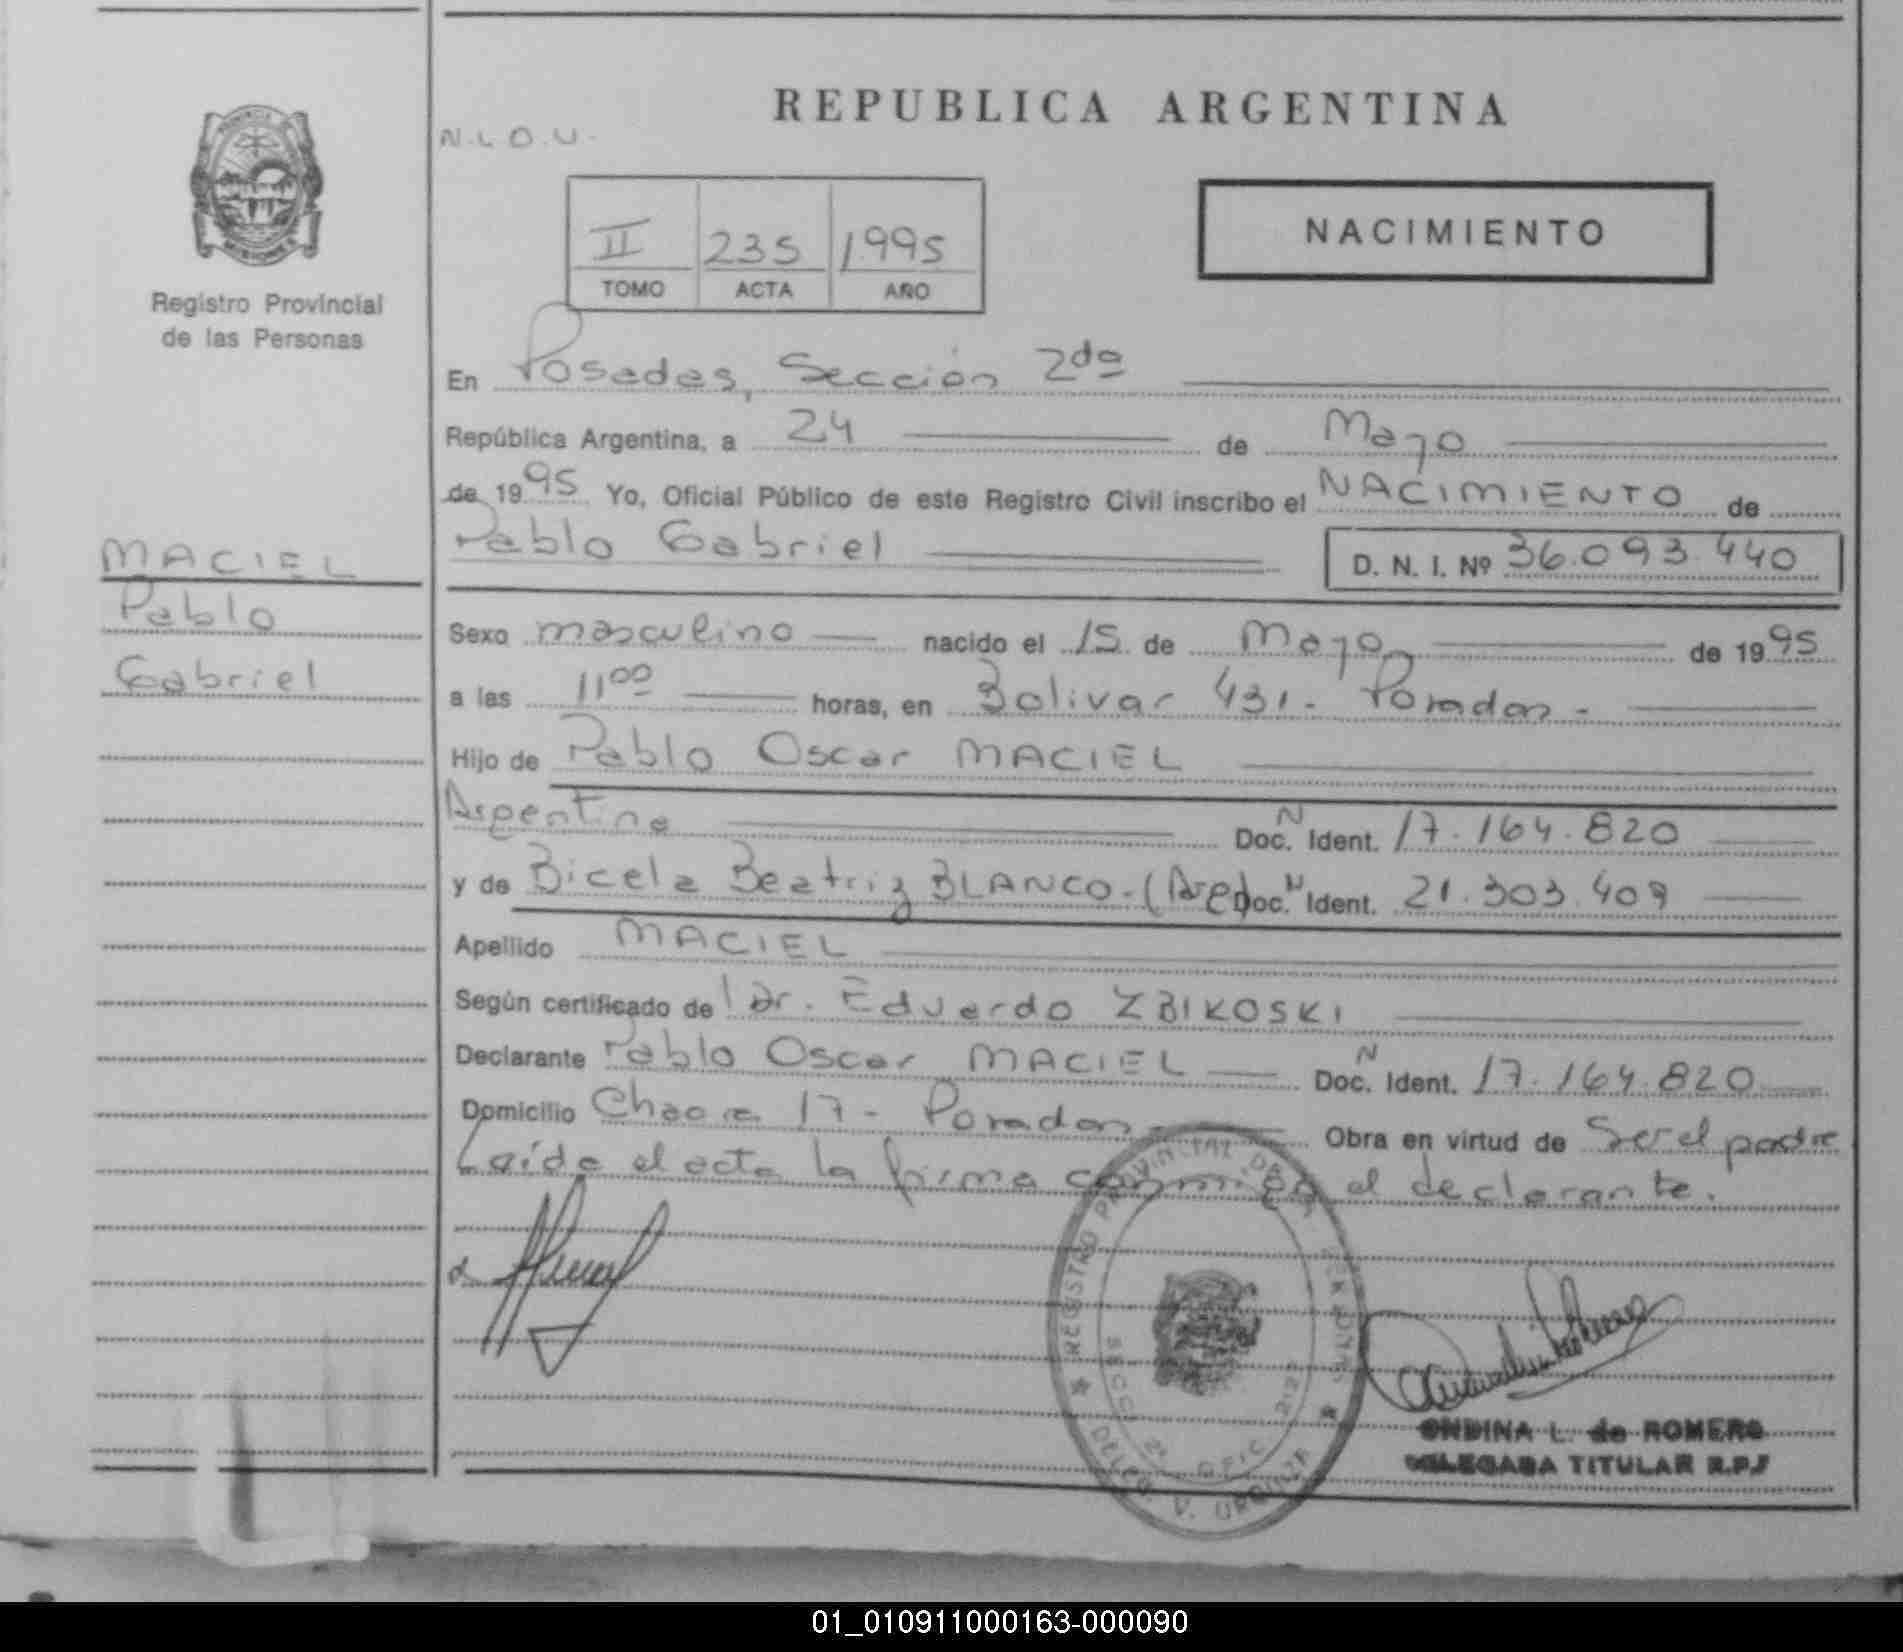 REPUBLICA ARGENTINA
N.L.O.U.
II 235 1995
TOMO ACTA AÑO
NACIMIENTO
Registro Provincial
de las Personas
En Posadas, Sección 2da
República Argentina, a 24 de Mayo
de 1995 Yo, Oficial Público de este Registro Civil inscribo el NACIMIENTO de
Pablo Gabriel D. N. I. Nº 36.093.440
MACIEL
Pablo
Gabriel
Sexo masculino nacido el 15 de Mayo de 1995
a las 11 00 horas, en Bolivar 431 - Posadas -
Hijo de Pablo Oscar MACIEL
Argentina Doc. N Ident. 17.164.820
y de Bicela Beatriz BLANCO - (Arg) Doc. N Ident. 21.303.409
Apellido MACIEL
Según certificado del Dr. Eduardo ZBIKOSKI
Declarante Pablo Oscar MACIEL Doc. N Ident. 17.164.820
Domicilio Chacra 17 - Posadas Obra en virtud de Ser el padre
Leída el acta la firma conmigo el declarante.
REGISTRO PROVINCIAL DE LAS PERSONAS
SECC. 2ª OFIC. 2121
DELEG. V. URQUIZA
ONDINA L. de ROMERO
DELEGADA TITULAR R.P.P
01_010911000163-000090